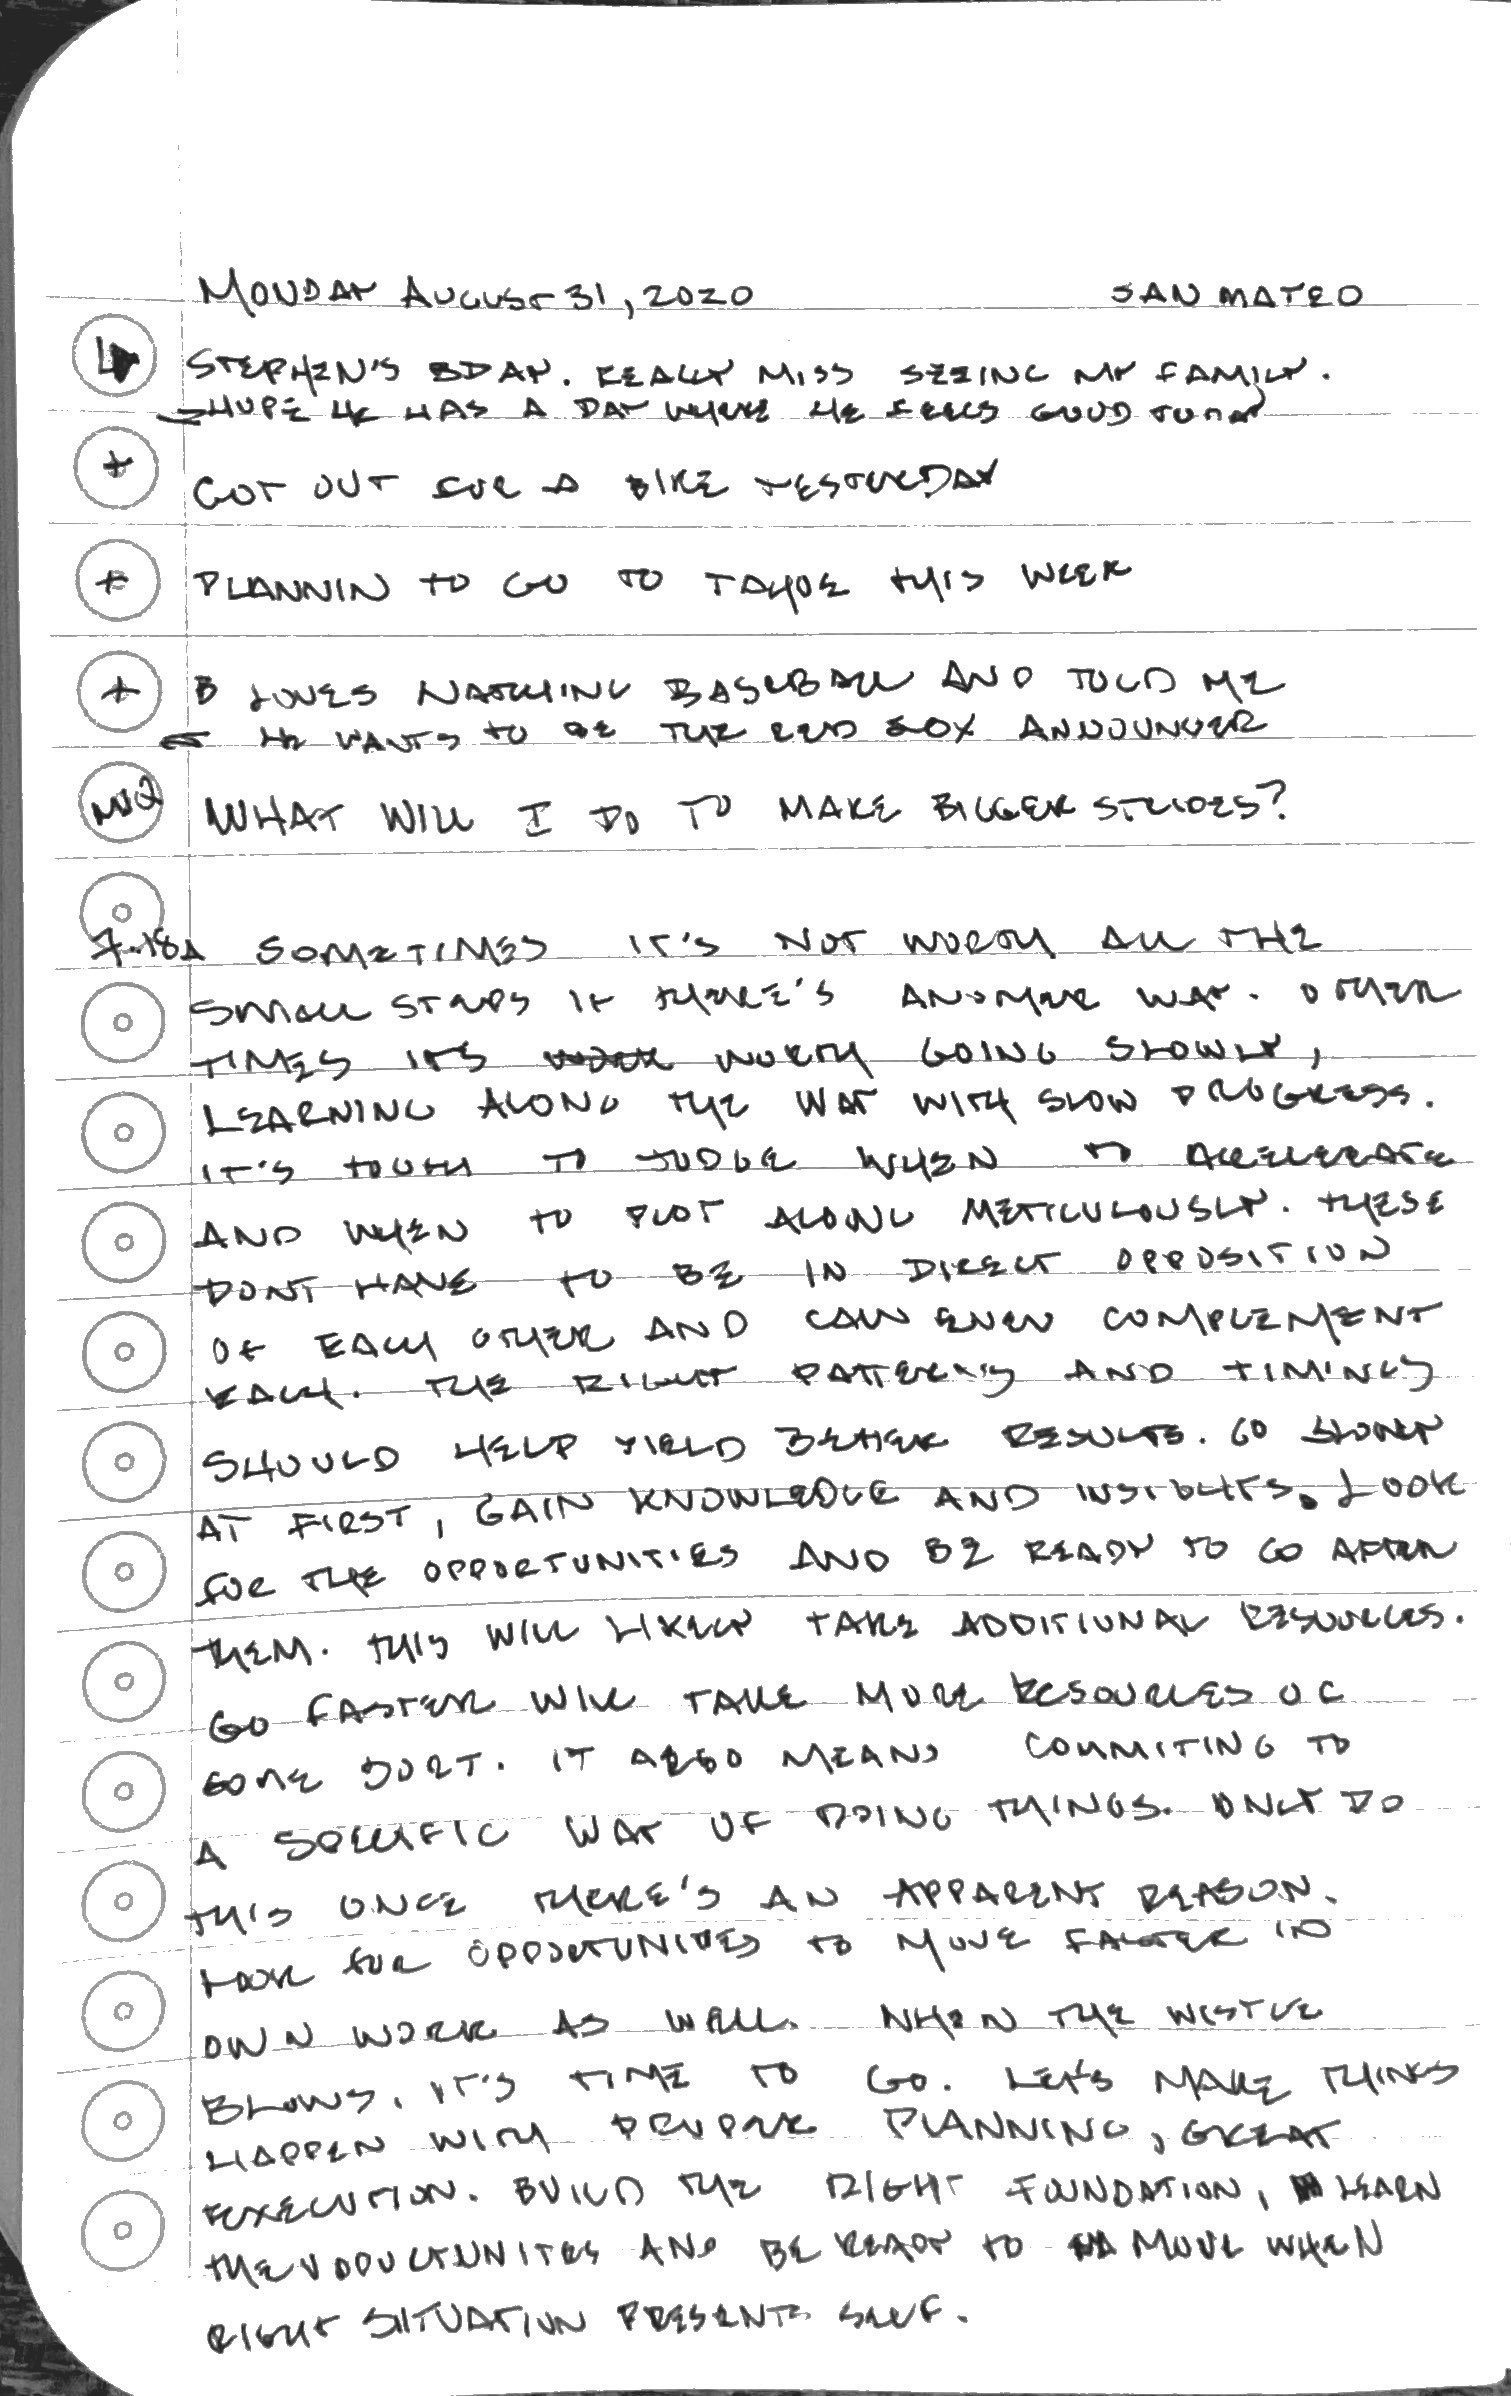 MONDAY AUGUST 31, 2020 SAN MATEO
STEPHEN'S BDAY. REALLY MISS SEEING MY FAMILY.
HOPE HE HAS A DAY WHERE HE FEELS GOOD TODAY
+ GOT OUT FOR A BIKE YESTERDAY
+ PLANNIN TO GO TO TAHOE THIS WEEK
+ B LOVES WATCHING BASEBALL AND TOLD ME
HE WANTS TO BE THE RED SOX ANNOUNCER
WHAT WILL I DO TO MAKE BIGGER STRIDES?
7:18A SOMETIMES IT'S NOT WORTH ALL THE
SMALL STEPS IF THERE'S ANOTHER WAY. OTHER
TIMES ITS WORTH GOING SLOWLY,
LEARNING ALONG THE WAY WITH SLOW PROGRESS.
IT'S TOUGH TO JUDGE WHEN TO ACCELERATE
AND WHEN TO PLOT ALONG METICULOUSLY. THESE
DONT HAVE TO BE IN DIRECT OPPOSITION
OF EACH OTHER AND CAN EVEN COMPLEMENT
EACH. THE RIGHT PATTERNS AND TIMINGS
SHOULD HELP YIELD BETTER RESULTS. GO SLOWLY
AT FIRST, GAIN KNOWLEDGE AND INSIGHTS. LOOK
FOR THE OPPORTUNITIES AND BE READY TO GO AFTER
THEM. THIS WILL LIKELY TAKE ADDITIONAL RESOURCES.
GO FASTER WILL TAKE MORE RESOURCES OF
SOME SORT. IT ALSO MEANS COMMITING TO
A SPECIFIC WAY OF DOING THINGS. ONLY DO
THIS ONCE THERE'S AN APPARENT REASON.
LOOK FOR OPPORTUNITIES TO MOVE FASTER IN
OWN WORK AS WELL. WHEN THE WISTLE
BLOWS, IT'S TIME TO GO. LET'S MAKE THINGS
HAPPEN WITH PROPER PLANNING, GREAT
EXECUTION. BUILD THE RIGHT FOUNDATION, LEARN
THE OPPORTUNITES AND BE READY TO MOVE WHEN
RIGHT SIITUATION PRESENTS SELF.